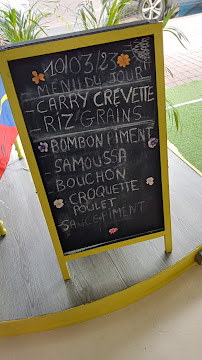 10/03/23
MENU DU JOUR
CARRY CREVETTE
-RIZ GRAINS
-BOMBON PIMENT
-SAMOUSSA
-BOUCHON
-CROQUETTE
POULET
-SAUCE PIMENT